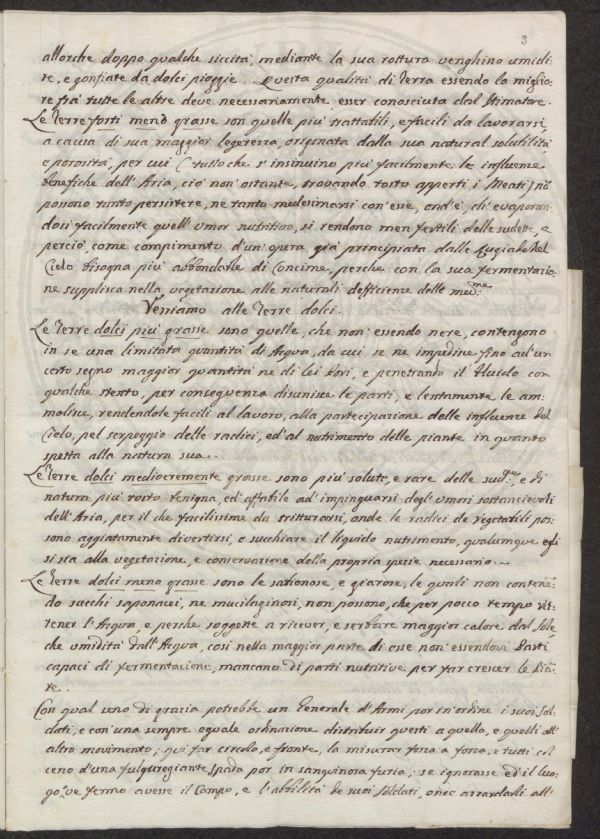 3
allorche doppo qualche siccità, mediante la sua rottura venghino umidi
te, e gonfiate da dolci pioggie. Questa qualità di Terra essendo la miglio-
re frà tutte le altre deve necessariamente esser conosciuta dal Stimatore.
Le Terre forti meno grasse son quelle più trattabili, e facili da lavorarsi
a causa di sua maggior legerezza, originata dalla sua natural solubilità
e porosità, per cui (tutto che s'insinuino più facilmente le influenze
benefiche dell'Aria, ciò non ostante, trovando tosto apperti i Meati) nō
possono tanto persistere, ne tanto medesimarsi con esse, ond'è, ch'evaporan-
dosi facilmente quell'umor nutritivo, si rendono men fertili delle sudette, e
perciò come compimento d'un'opera già principiata dalle del
Cielo bisogna più abbondarle di Concime, perche con la sua fermentazio-
ne supplisca nella vegetazione alle naturali defficienze delle med.me
Veniamo alle Terre dolci.
Le Terre dolci più grasse sono quelle, che non essendo nere, contengono
in se una limitata quantità di Acqua, da cui se ne impedisce fino ad un
certo segno maggior quantità ne di lei Pori, e penetrando il Fluido con
qualche stento, per conseguenza disunisce le parti, e lentamente le am-
molisce, rendendole facili al lavoro, alla partecipazione delle influenze del
Cielo, pel serpeggio delle radici, ed al nutrimento delle piante in quanto
spetta alla nattura sua.
Le Terre dolci mediocremente grasse sono più solute, e rare delle sud.e, e di
natura più tosto benigna, ed affabile ad impinguarsi degl'umori sostancievoli
dell'Aria, per il che facilissime da tritturarsi, onde le radici de Vegetabili pos-
sono aggiatamente divertirsi, e succhiare il liquido nutrimento, qualumque egli
si sia alla vegetazione, e conservazione della propria specie necessario.
Le Terre dolci meno grasse sono le sabionose, e giarose, le quali non contenē-
do succhi saponacei, ne mucilaginosi, non possono, che per pocco tempo rit-
tener l'Acqua, e perche soggette a ricever, e serbare maggior calore dal Sole,
che umidità dall'Acqua, così nella maggior parte di esse non essendovi Parti
capaci di fermentazione, mancano di parti nutritive per far crescer le Biā-
te.
Con qual seno di grazia potrebbe un Generale d'Armi por in ordine i suoi Sol-
dati, e con una sempre eguale ordinazione distribuir questi a quello, e quelli all'
altro movimento; qui far circolo, e fronte, là misurar forza a forza, e tutti col
ceno d'una fulguregiante Spada por in sanguinosa furia; se ignorasse ed il luo-
go ove fermo avesse il Campo, e l'abbilità de suoi Soldati, all'